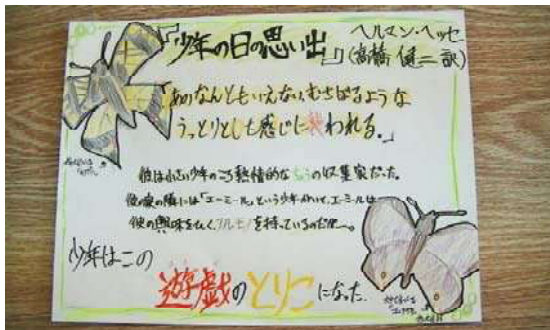 『少年の日の思い出』
ヘルマン・ヘッセ
(高橋健二訳)
「あのなんともいえない、むさぼるような
うっとりとした感じに襲われる。」
彼は小さい少年のころ熱情的なちょうの収集家だった。
彼の家の隣には「エーミール」という少年がいて、エーミールは
彼の興味をひくを持っているのだ
少年はこの
遊戯のとりこになった。